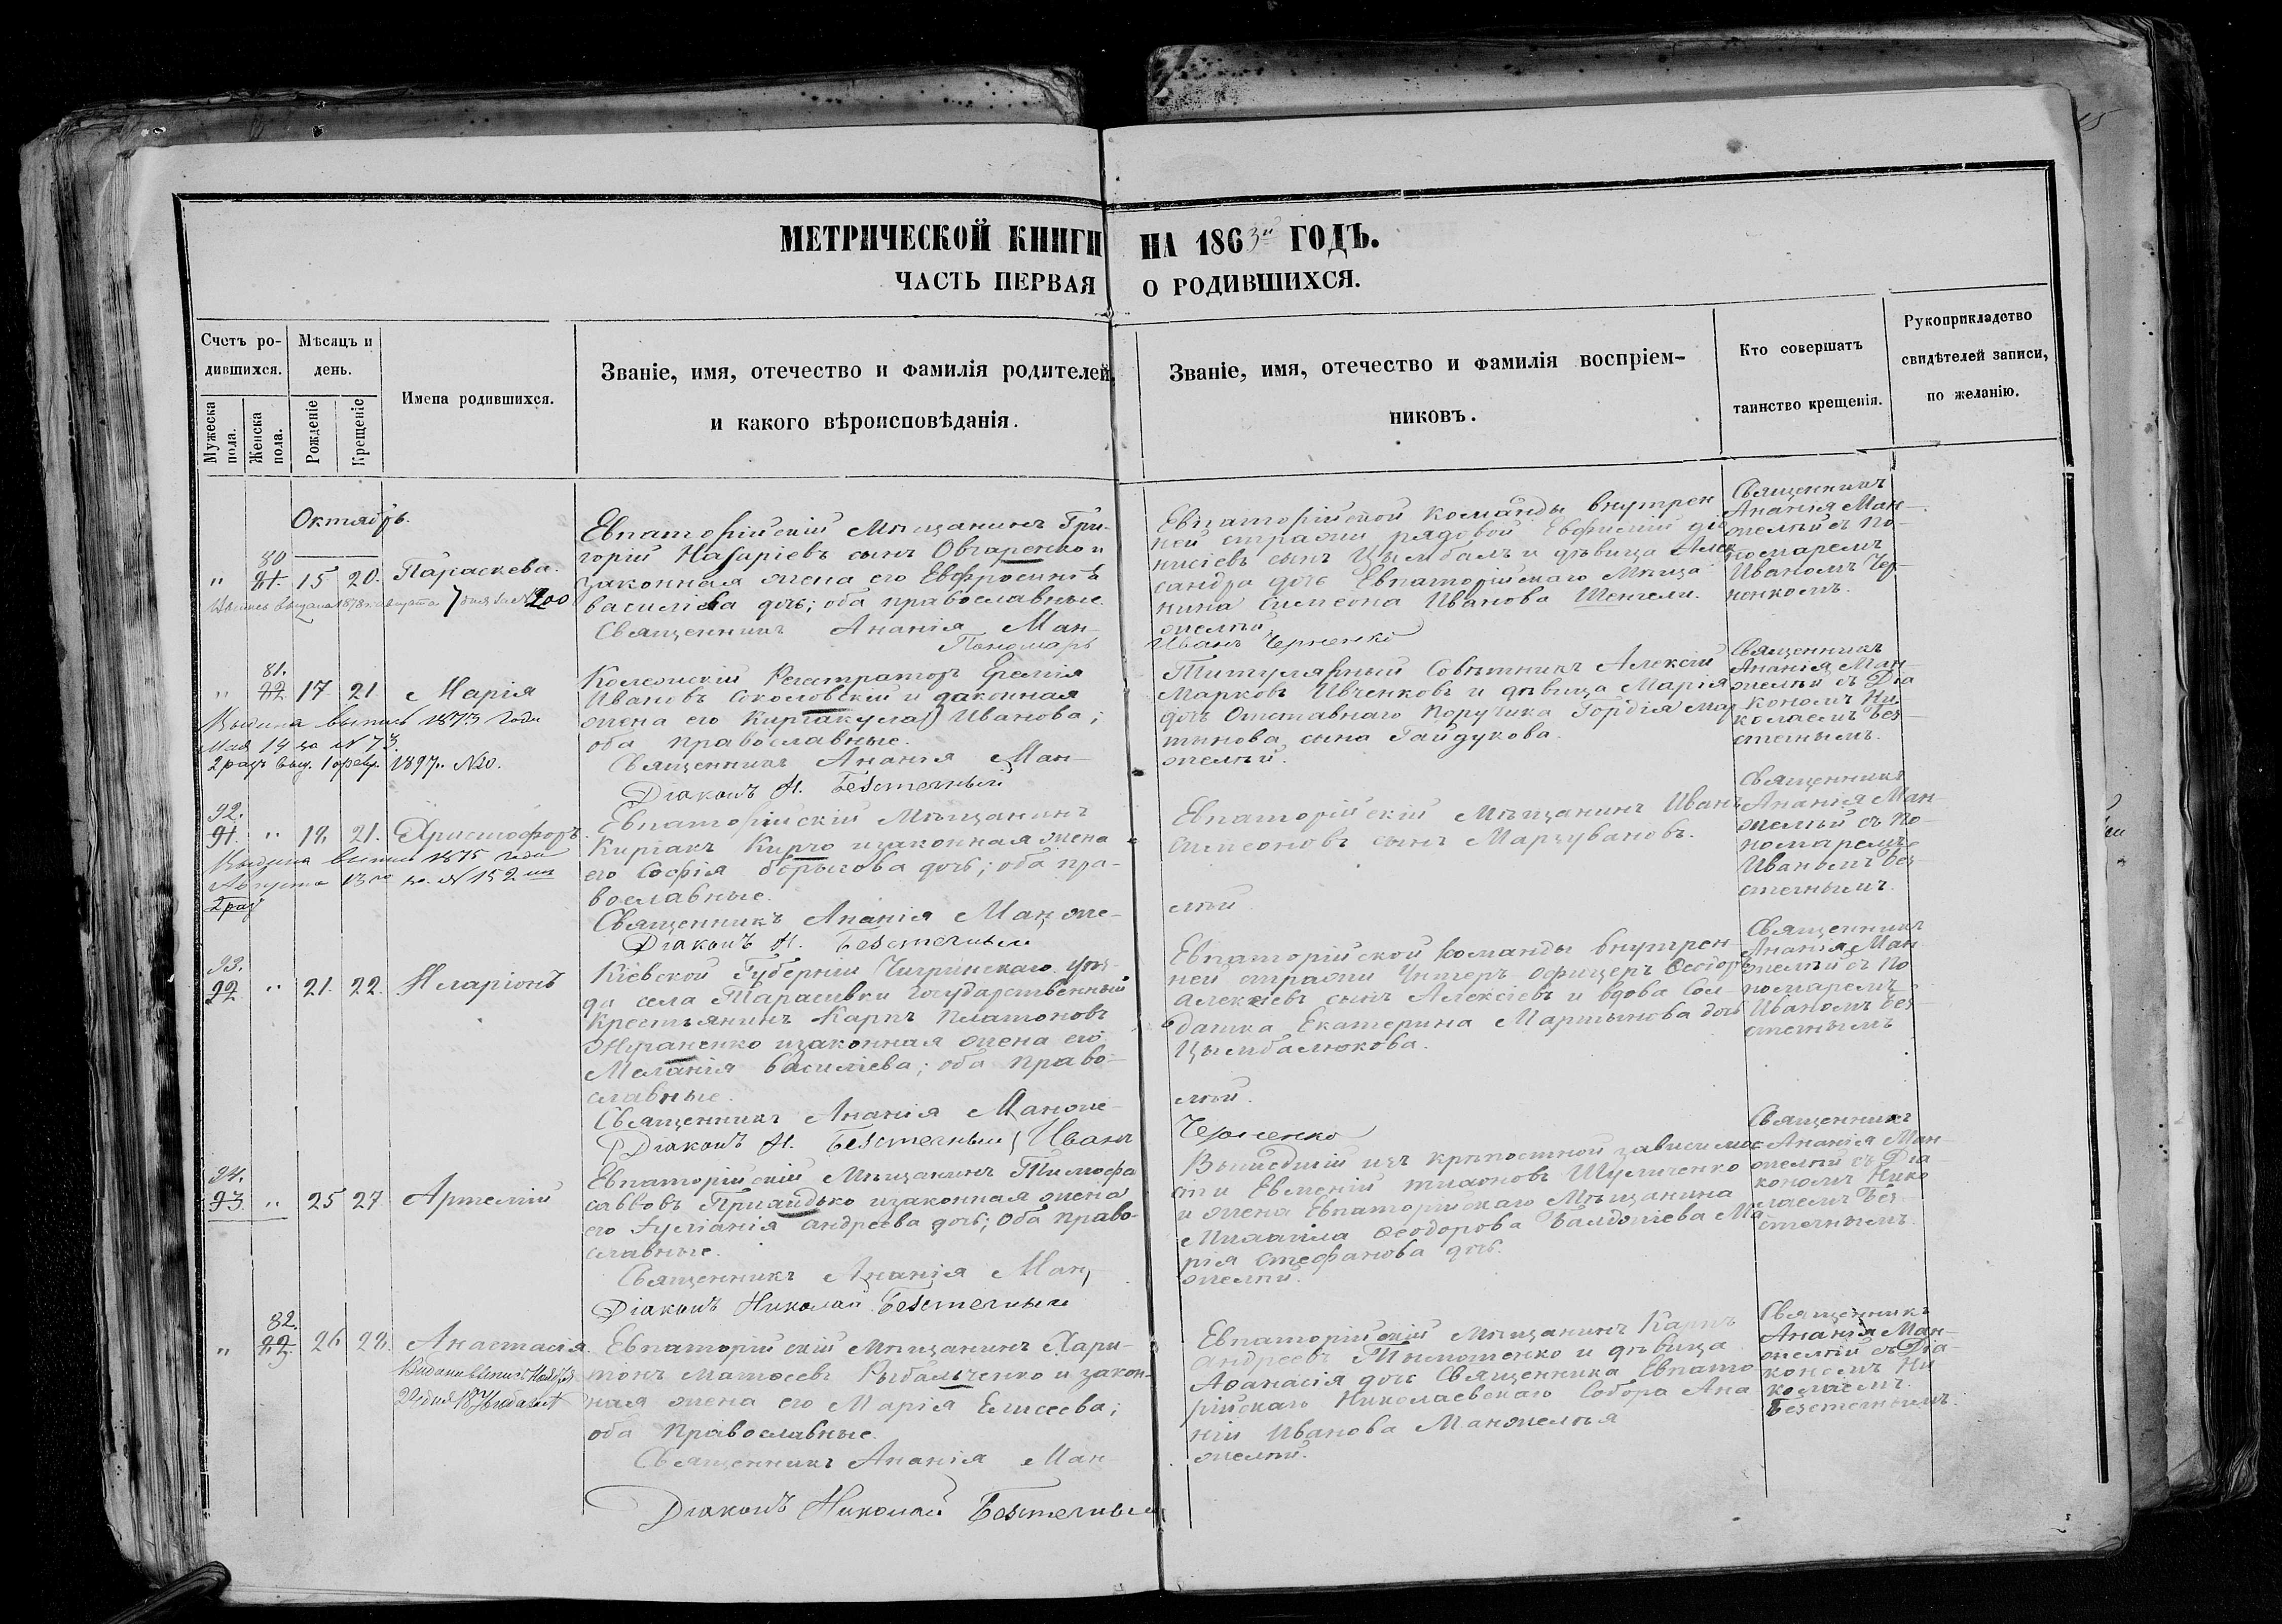 МЕТРИЧЕСКОЙ КНИГИ НА 1863й ГОДЪ.
ЧАСТЬ ПЕРВАЯ О РОДИВШИХСЯ.
Счетъ ро-
дившихся.
Мужеска
пола.
Женска
пола.
Мѣсяцъ и
день.
Рожденіе
Крещеніе
Имена родившихся.
Званіе, имя, отечество и фамилія родителей,
и какого вѣроисповѣданія.
Званіе, имя, отечество и фамилія воспріем-
никовъ.
Кто совершатъ
таинство крещенія.
Рукоприкладство
свидѣтелей записи,
по желанію.
Октябрь.
80
" 15 20. Параскева.
Выпись выдана 1878 г. августа 7 дня за № 200
Евпаторійскій Мѣщанинъ Гри-
горій Назаріевъ сынъ Овчаренко и
законная жена его Евфросинія
василіева дочь; оба православные.
Священникъ Ананія Ман-
Пономарь
Евпаторійской команды внутрен
ней стражи рядовой Евфимій Діо
нисіевъ сынъ Цымбалъ и дѣвица Алек
сандра дочь Евпаторійскаго Мѣща
нина Симеона Иванова Шенгели.
желѣй
Иванъ Черненко
Священникъ
Ананія Ман-
желѣй съ По-
номаремъ
Иваномъ Чер-
ненкомъ.
81.
" 17 21 Марія
Выдана выпись 1873 года
Мая 14 за № 73.
2 разъ выд. 1 февр. 1897 г. №20.
Колежскій Регстраторъ Еремія
Ивановъ Соколовскій и законная
жена его Киріакула Иванова;
оба православные.
Священникъ Ананія Ман-
Діаконъ Н. Безстечный
Титулярный Совѣтникъ Алексій
Марковъ Ивченковъ и дѣвица Марія
дочь Отставнаго Поручика Гордія Мар
тинова сына Гайдукова.
желѣй.
Священникъ
Ананія Ман-
желѣй съ Діа
кономъ Ни
колаемъ Без-
стечнымъ.
92.
91. " 18 21. Христофоръ.
Выдана выпись 1875 года
Августа 13го за № 152мъ
2 раз
Евпаторійскій Мѣщанинъ
Киріакъ Кирчо и законная жена
его Софія Борисова дочь; оба пра-
вославные.
Священникъ Ананія Манже-
Діаконъ Н. Безстечный
Евпаторійскій Мѣщанинъ Иванъ
Симеоновъ сынъ Марзувановъ.
лѣй
Священникъ
Ананія Ман-
желѣй съ По-
номаремъ
Иваномъ Без-
стечнымъ.
93.
92 " 21. 22. Иларіонъ
Кіевской Губерніи Чигринскаго уѣз-
да села Тарасивки Государственный
Крестьянинъ Карпъ Платоновъ
Жученко и законная жена его
Меланія Василіева; оба право-
славные.
Священникъ Ананія Манже-
Діаконъ Н. Безстечный Иванъ
Евпаторійской Команды внутрен
ней стражи Унтеръ-офицеръ Феодоръ
Алексіевъ сынъ Алексіевъ и вдова Сол-
датка Екатерина Мартынова дочь
Цымбалюкова.
лѣй.
Черненко
Священникъ
Ананія Ман
желѣй съ По
номаремъ
Иваномъ Без-
стечнымъ
94.
93 " 25 27. Артемій
Евпаторійскій Мѣщанинъ Тимофей
саввовъ Приайдько и законная жена
его Іуліанія андреева дочь; оба право-
славные.
Священникъ Ананія Ман-
Діаконъ Николай Безстечный
Вышедшій изъ крѣпостной зависимос
сти Евменій Шуличенко
и жена Евпаторійскаго Мѣщанина
Михаила Феодорова Балджіева Ма
рія стефанова дочь.
желѣй.
Священникъ
Ананія Ман-
желѣй съ Діа-
кономъ Нико
лаемъ Без-
стечнымъ.
82.
" 26 28. Анастасія.
Евпаторійскій мѣщанинъ Хари-
тонъ матѳеевъ Рыбальченко и закон-
ная жена его Марія Елисеева;
оба Православные.
Священникъ Ананія Ман-
Діаконъ Николай Безстечный
Евпаторійскій мѣщанинъ Карпъ
андреевъ Тимошенко и дѣвица
Афанасія дочь Священника Евпато
рійскаго Николаевскаго Собора Ана
ніи Иванова Манжелѣя
желѣй.
Священникъ
Ананія Ман-
желѣй съ Діа-
кономъ Ни
колаемъ
Безстечнымъ.